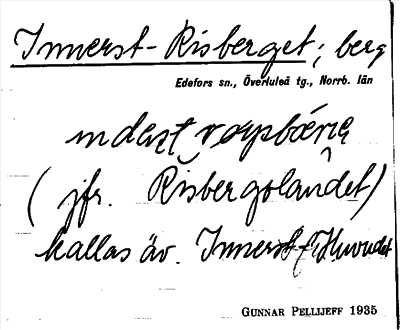 Innerst-Risberget; berg
Edefors sn., Överluleå tg., Norrb. län
(jfr. Risbergolandet)
kallas äv. Innerst-
GUNNAR PELLIJEFF 1935